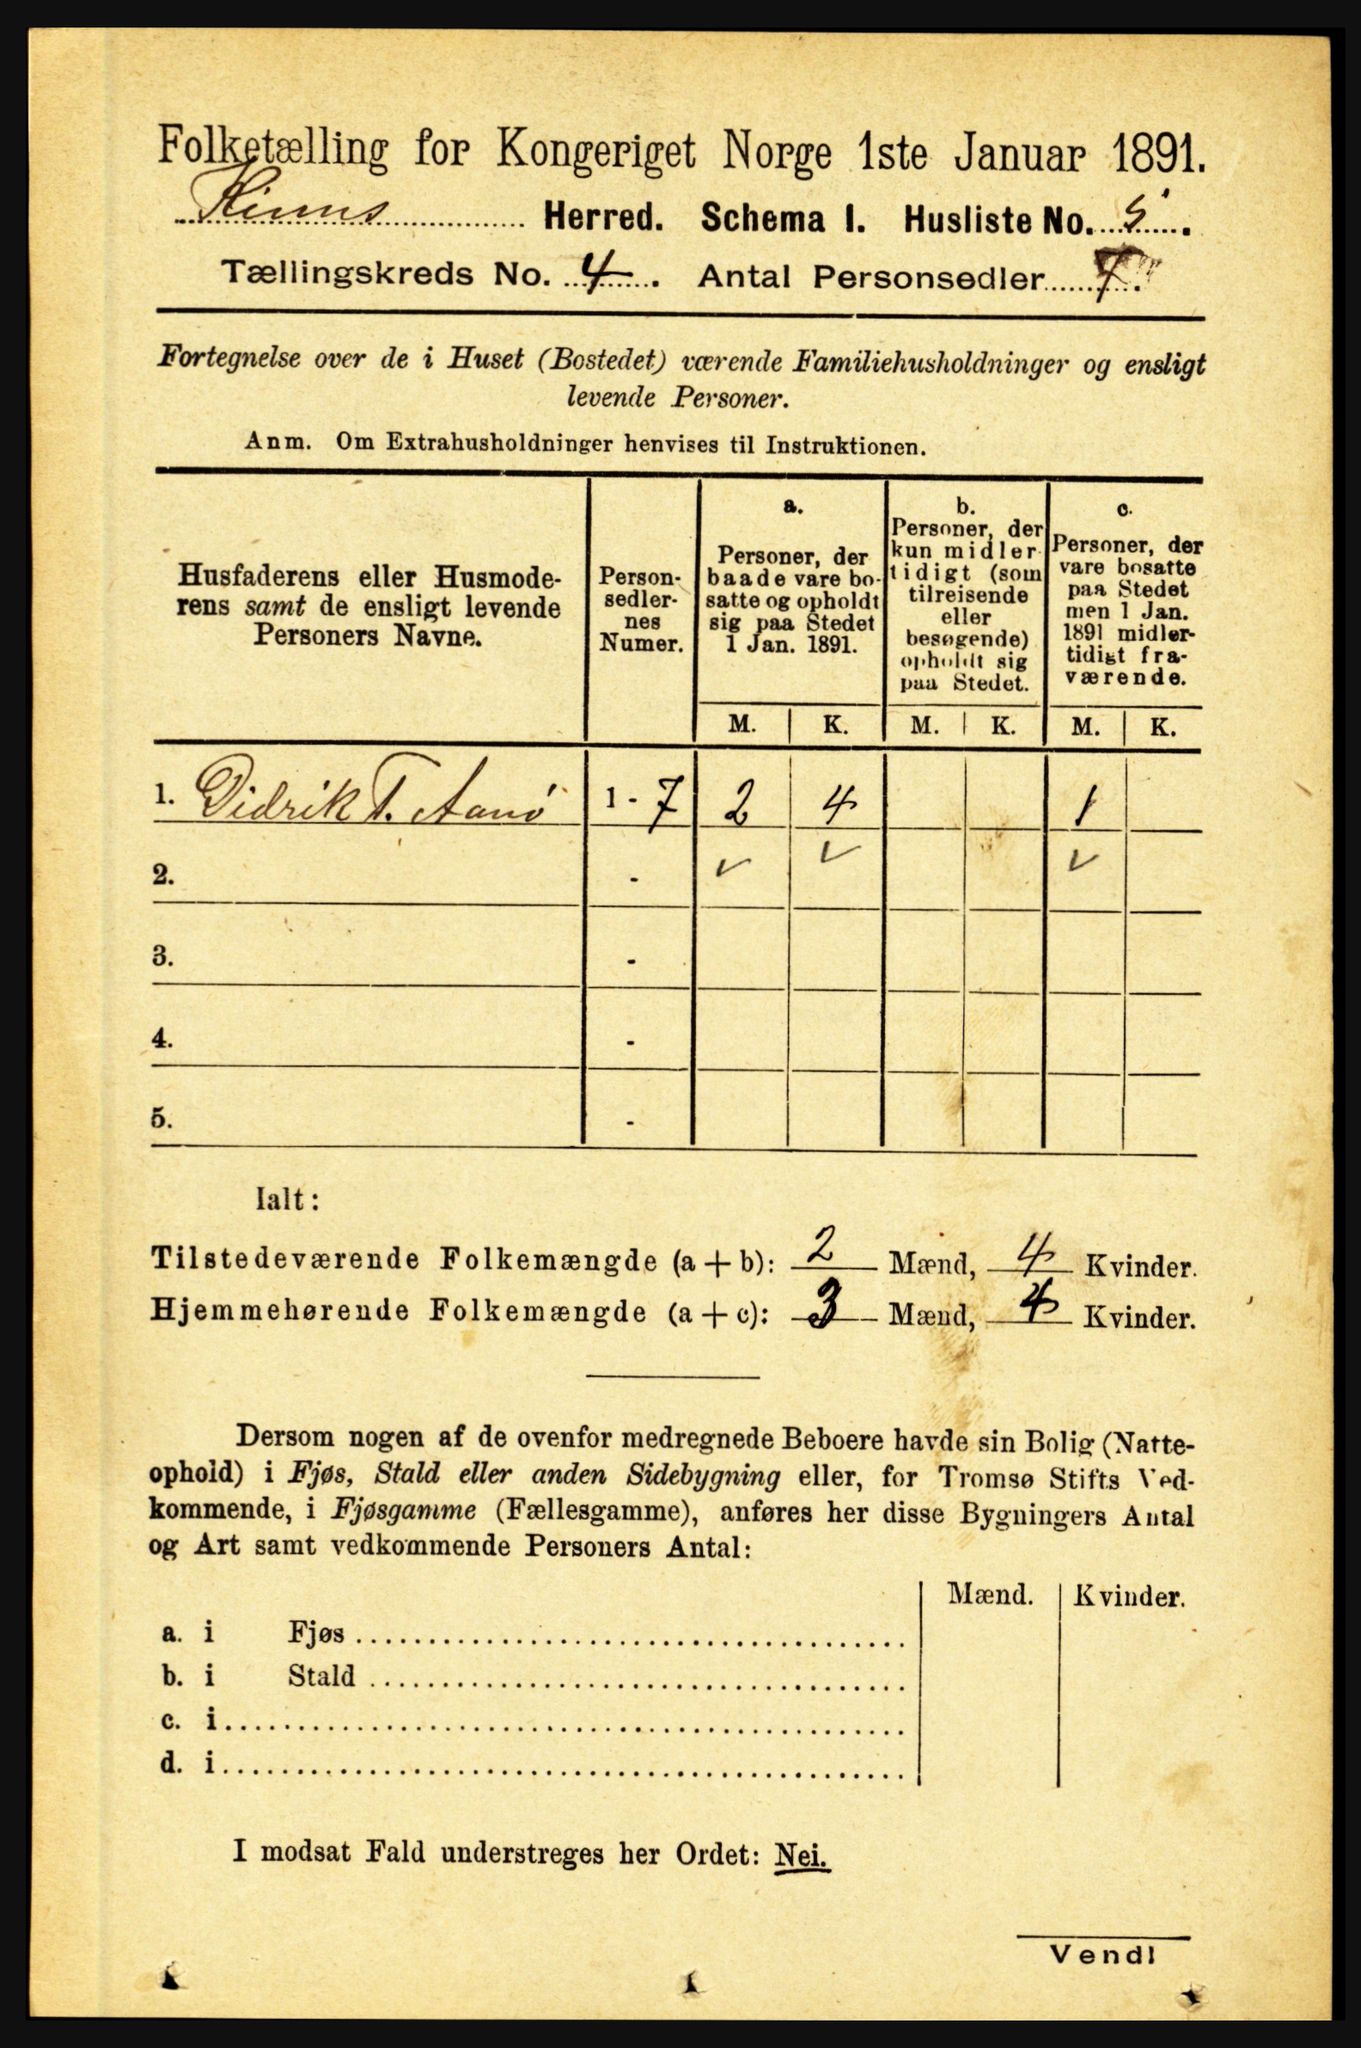 Folketælling for Kongeriget Norge 1ste Januar 1891.
Kinns Herred. Schema I. Husliste No. 5.
Tællingskreds No. 4. Antal Personsedler 7.
Fortegnelse over de i Huset (Bostedet) værende Familiehusholdninger og ensligt
levende Personer.
Anm. Om Extrahusholdninger henvises til Instruktionen.
Husfaderens eller Husmode-
rens samt de ensligt levende
Personers Navne.
Person-
sedler-
nes
Numer.
a.
Personer, der
baade vare bo-
satte og opholdt
sig paa Stedet
1 Jan. 1891.
b.
Personer, der
kun midler
tidigt (som
tilreisende
eller
besøgende)
opholdt sig
paa Stedet.
c.
Personer, der
vare bosatte
paa Stedet
men 1 Jan.
1891 midler-
tidigt fra-
værende.
M. K. M. K. M. K.
1. Didrik T. Aanø 1 - 7 2 4 1
2. -
3. -
4. -
5. -
Ialt:
Tilstedeværende Folkemængde (a + b): 2 Mænd, 4 Kvinder.
Hjemmehørende Folkemængde (a + c): 3 Mænd, 4 Kvinder.
Dersom nogen af de ovenfor medregnede Beboere havde sin Bolig (Natte-
ophold) i Fjøs, Stald eller anden Sidebygning eller, for Tromsø Stifts Ved-
kommende, i Fjøsgamme (Fællesgamme), anføres her disse Bygningers Antal
og Art samt vedkommende Personers Antal:
Mænd. Kvinder.
a. i Fjøs
b. i Stald
c. i
d. i
I modsat Fald understreges her Ordet: Nei.
Vend!